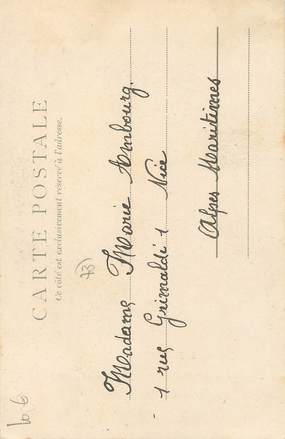 CARTE POSTALE
Ce côté est exclusivement réservé à l'adresse.
73)
Madame Marie Ambourg.
1 rue Grimaldi 1 Nice
Alpes Maritimes